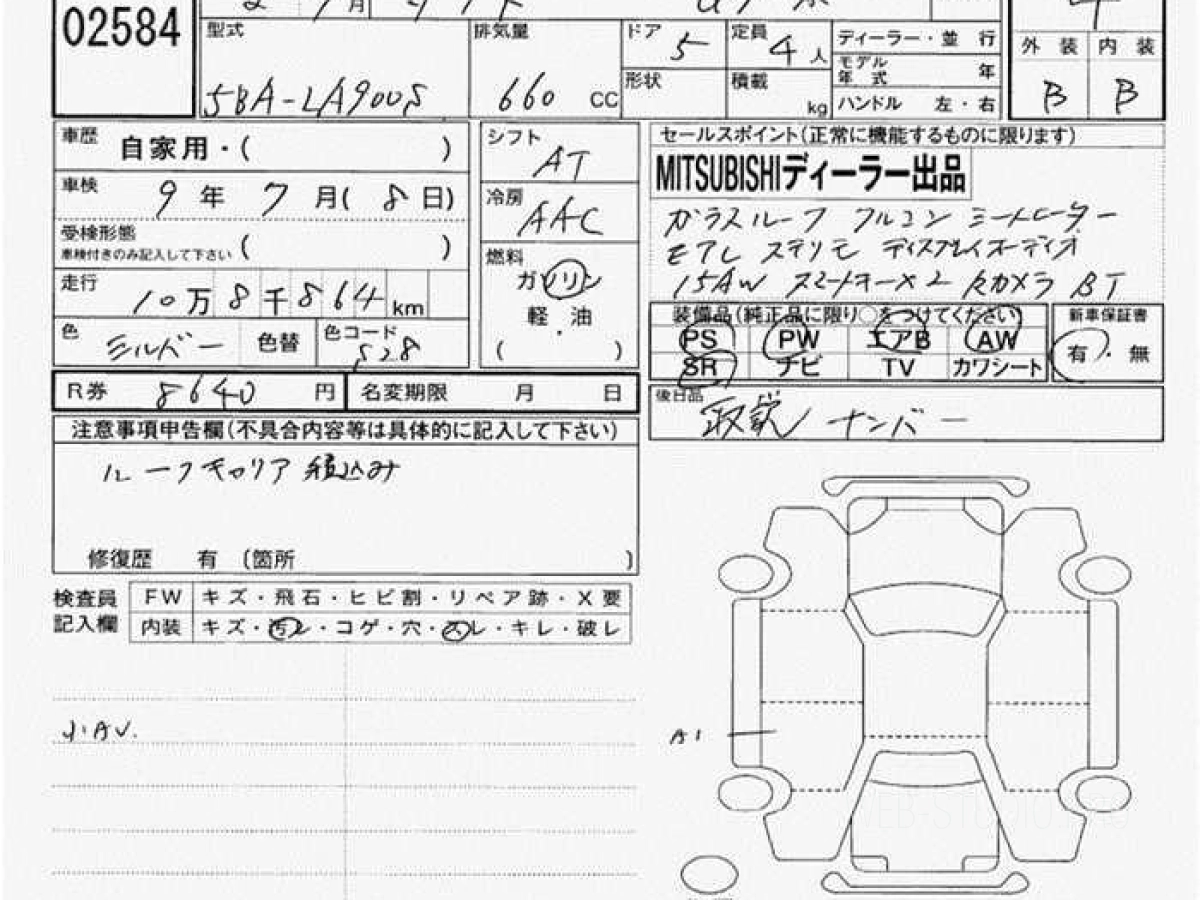 02584
型式 5BA-LA900S
排気量 660 CC
ドア 5
定員 4人
ディーラー・並 行
モデル年式 年
外 装 内 装
形状
積載 kg
ハンドル 左・右
B B
車歴 自家用・( )
シフト AT
セールスポイント(正常に機能するものに限ります)
MITSUBISHIディーラー出品
車検 9年 7月( 8日)
冷房 AAC
ガラスルーフ フルコン シートヒーター
受検形態 車検付きのみ記入して下さい ( )
モアレ ステリモ ディスプレイオーディオ
燃料 ガソリン・軽・油 ( )
15AW スマートキー×2 Bカメラ BT
走行 10万8千864km
装備品(純正品に限り○をつけてください)
新車保証書
色 シルバー
色替
色コード S28
PS PW エアB AW
有・無
SR ナビ TV カワシート
R券 8640円
名変期限 月 日
後日品 取説 ナンバー
注意事項申告欄(不具合内容等は具体的に記入して下さい)
ルーフキャリア積込み
修復歴 有 (箇所 )
検査員記入欄
FW キズ・飛石・ヒビ割・リペア跡・X要
内装 キズ・汚レ・コゲ・穴・スレ・キレ・破レ
小AU.
A1